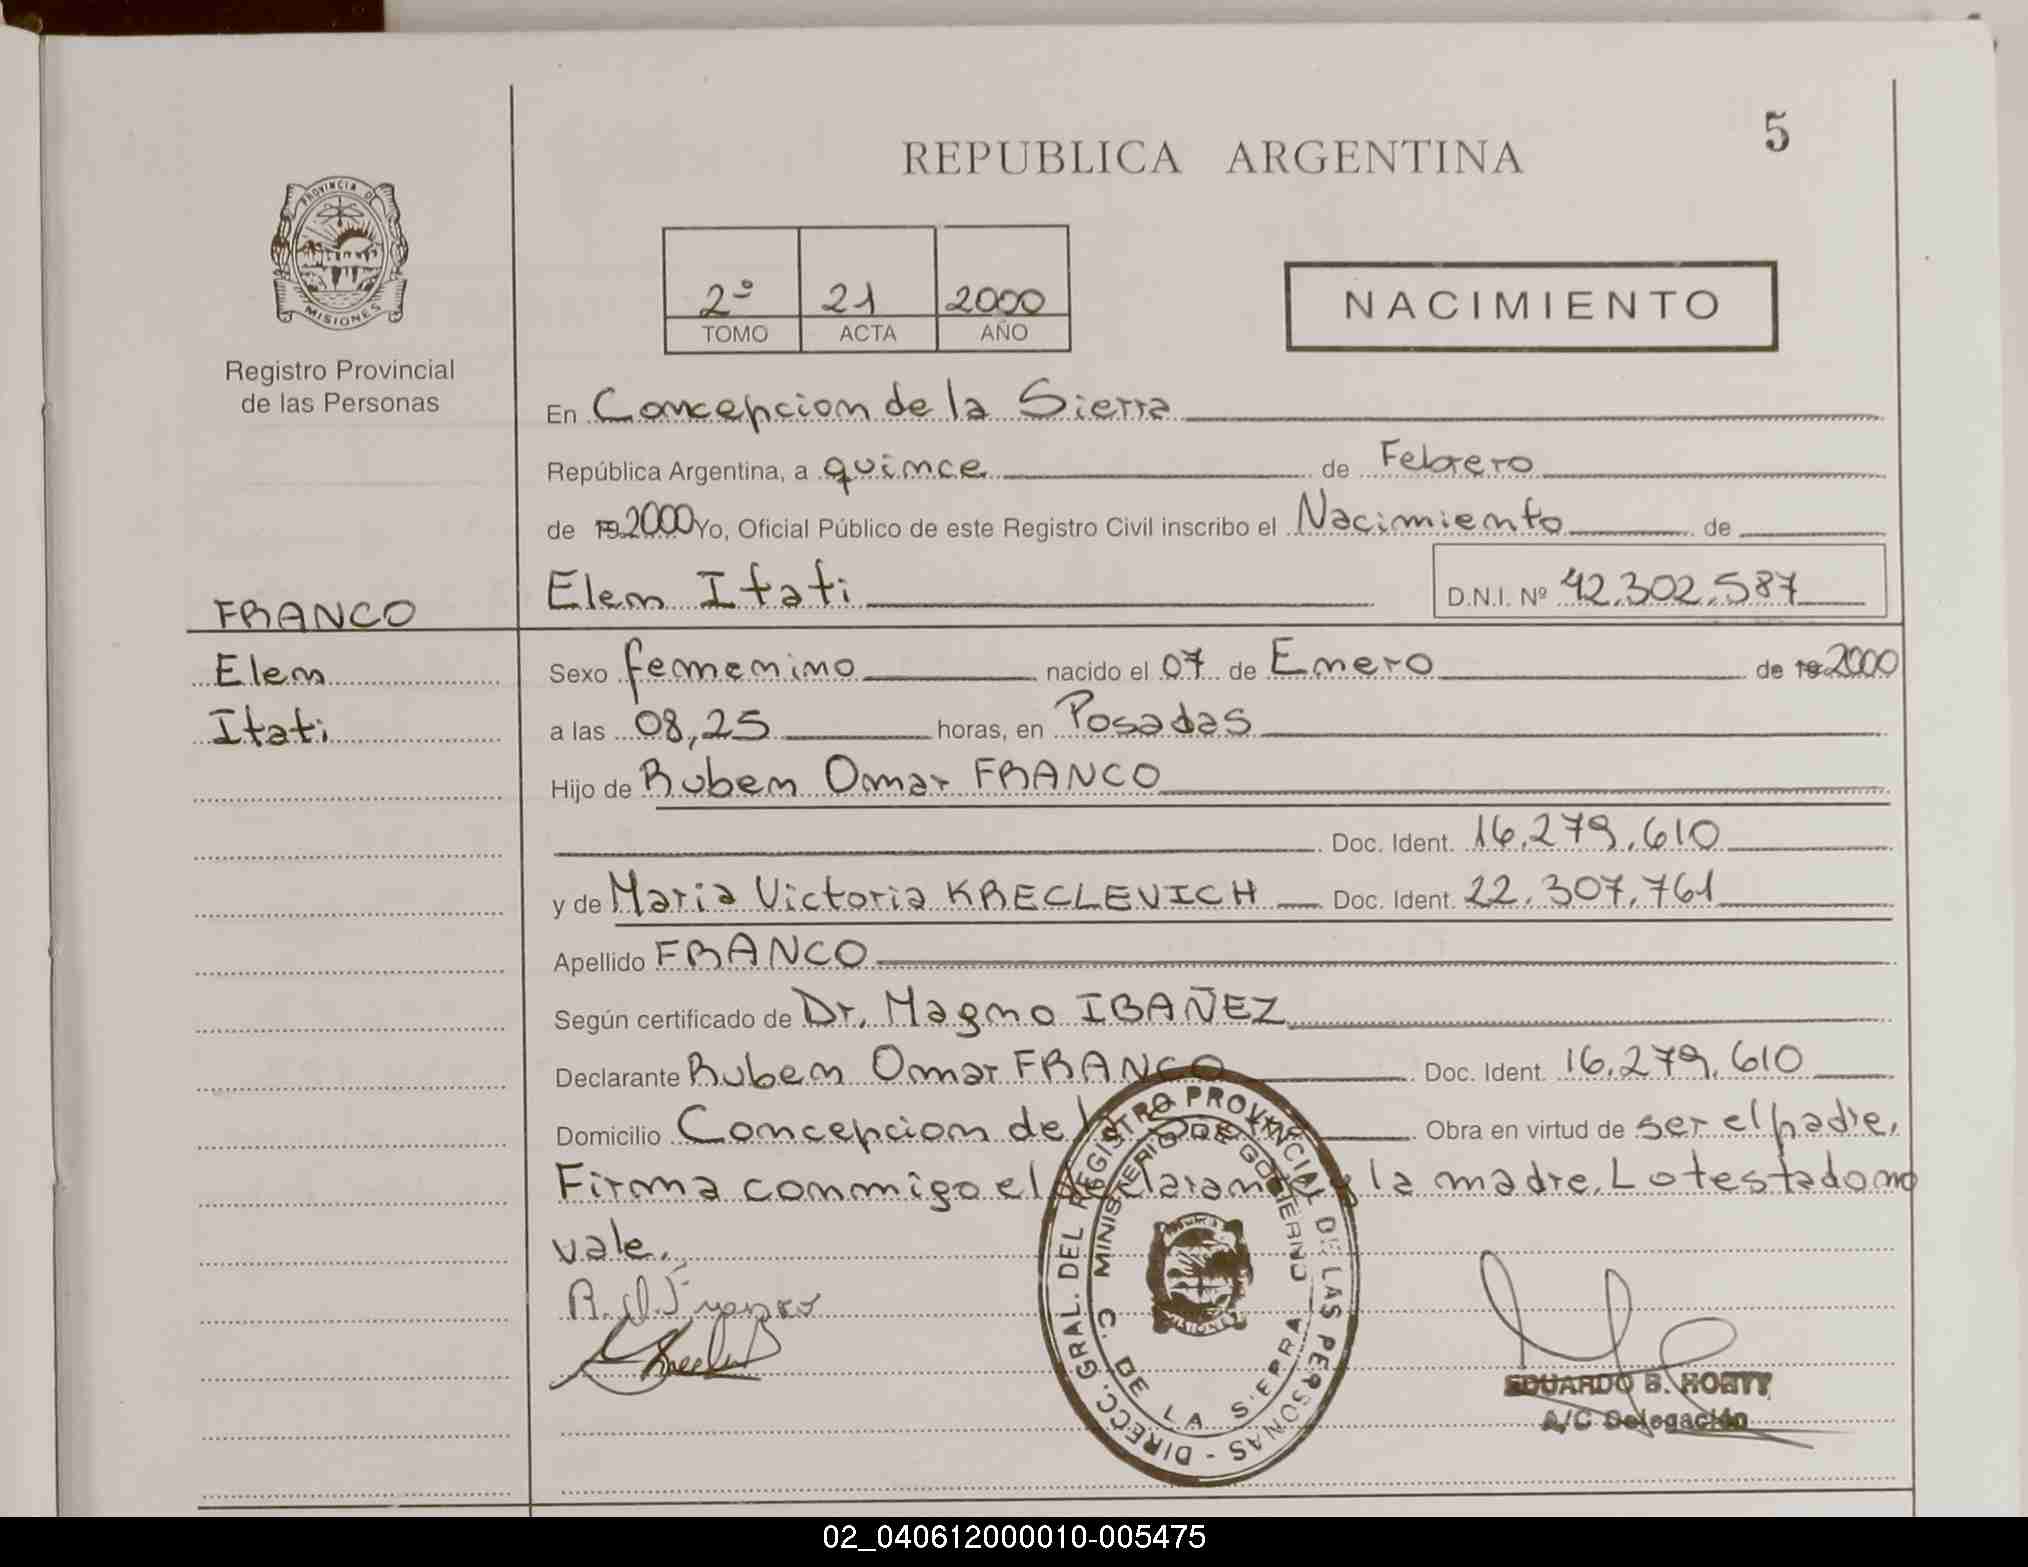 REPUBLICA ARGENTINA
5
PROVINCIA DE
MISIONES
Registro Provincial
de las Personas
2º 21 2000
TOMO ACTA AÑO
NACIMIENTO
En Concepcion de la Sierra
República Argentina, a quince de Febrero
de 19 2000 Yo, Oficial Público de este Registro Civil inscribo el Nacimiento de
FRANCO
Elem Itati D.N.I. Nº 42.302.587
Elem
Itati
Sexo femenino nacido el 07 de Enero de 19 2000
a las 08,25 horas, en Posadas
Hijo de Ruben Omar FRANCO
Doc. Ident. 16.279.610
y de Maria Victoria KRECLEVICH Doc. Ident. 22.307.761
Apellido FRANCO
Según certificado de Dr. Magno IBAÑEZ
Declarante Ruben Omar FRANCO Doc. Ident. 16.279.610
Domicilio Concepcion de la Sierra Obra en virtud de ser el padre.
Firma conmigo el declarante y la madre. Lo testado no
vale.
R. O. Franco
DIRECC. GRAL. DEL REGISTRO PROVINCIAL DE LAS PERSONAS -
MINISTERIO DE GOBIERNO
C. DE LA SIERRA
MISIONES
EDUARDO B. HORTY
A/C Delegación
02_040612000010-005475